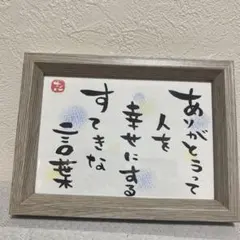 ありがとうって
人を
幸せにする
すてきな
言葉